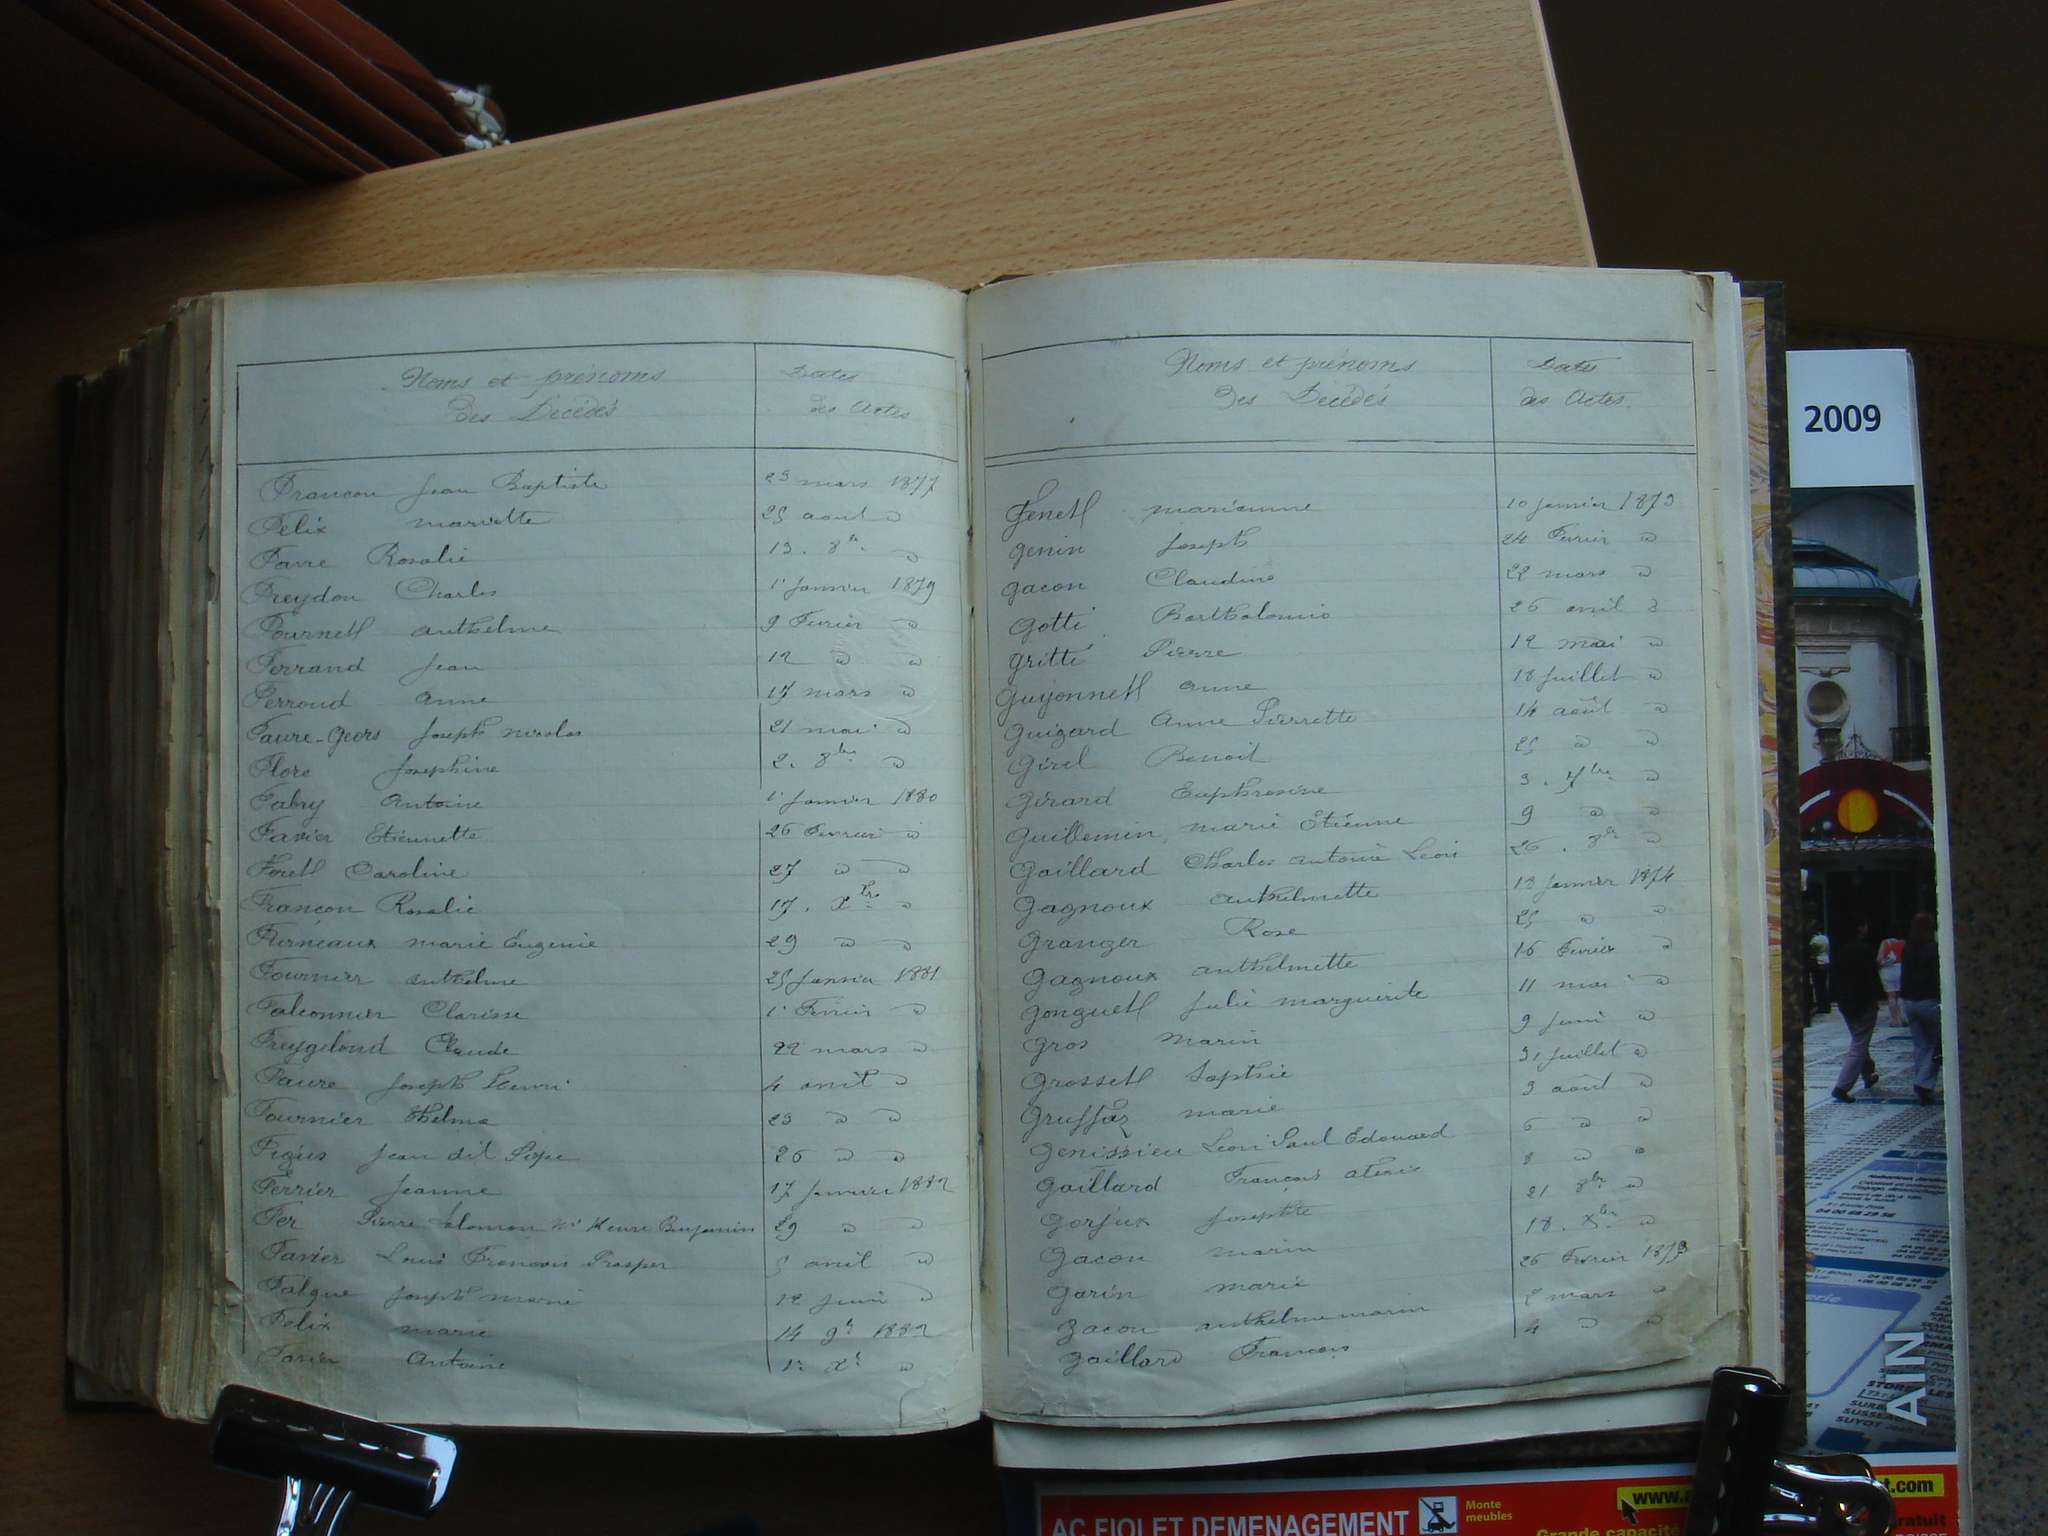 Noms et prénoms Dates
des Décédés des Actes
Francon Jean Baptiste 23 mars 1877
Felix mariette 25 aout "
Favre Rosalie 13. 8bre "
Freydon Charles 1r Janvier 1879
Fournell anthelme 9 Fevrier "
Ferrand Jean 12 " "
Perroud anne 17 mars "
Faure-Geors Joseph nicolas 21 mai "
Flore Josephine 2. 8bre "
Fabry Antoine 1r Janvier 1880
Favier Etiennette 26 Fevrier "
Forell Caroline 27 " "
Francon Rosalie 17. Xbre "
Furneaux marie Eugenie 29 " "
Fournier anthelme 25 Janvier 1881
Falconnier Clarisse 1r Fevrier "
Freygeloud Claude 22 mars "
Faure Joseph Henri 4 avril "
Fournier thelme 23 " "
Jean dit 26 " "
Ferrier Jeanne 17 Janvier 1882
Fer Pierre Salomon Henri Benjamin 29 " "
Favier Louis François Prosper 5 avril "
Falque Joseph marie 12 Juin "
Felix marie 14 9b 1882
Favier Antoine 1r Xb "
Noms et prénoms Dates
des Décédés des Actes.
Genell marianne 10 Janvier 1873
Genin Joseph 24 Fevrier "
Gacon Claudine 22 mars "
Gotti Bartholomio 26 avril "
Gritti Pierre 12 mai "
Guyonnell anne 18 Juillet "
Guigard Anne Pierrette 14 août "
Girel Benoit 25 " "
Girard Euphrosine 3. 7bre "
Guillemin marie Etienne 9 " "
Gaillard Charles antoine Leon 26. 8br "
Gagnoux anthelmette 13 Janvier 1874
Granger Rose 25 " "
Gagnoux anthelmette 16 Fevrier "
Gonguell Julie marguerite 11 mai "
Gros marin 9 Juin "
Grossell Sophie 31 Juillet "
Gruffaz marie 3 août "
Genissieu Leon Paul Edouard 6 " "
Gaillard François alexis 8 " "
Gorjux Josephte 21 8br "
Gacon marin 18. Xbre "
Garin marie 26 Fevrier
Gacon anthelme marin 2 mars "
Gaillard François 4 " "
2009
AIN
AC FIOLET DEMENAGEMENT
Monte
meubles
www.
t.com
Grande capacité
gratuit